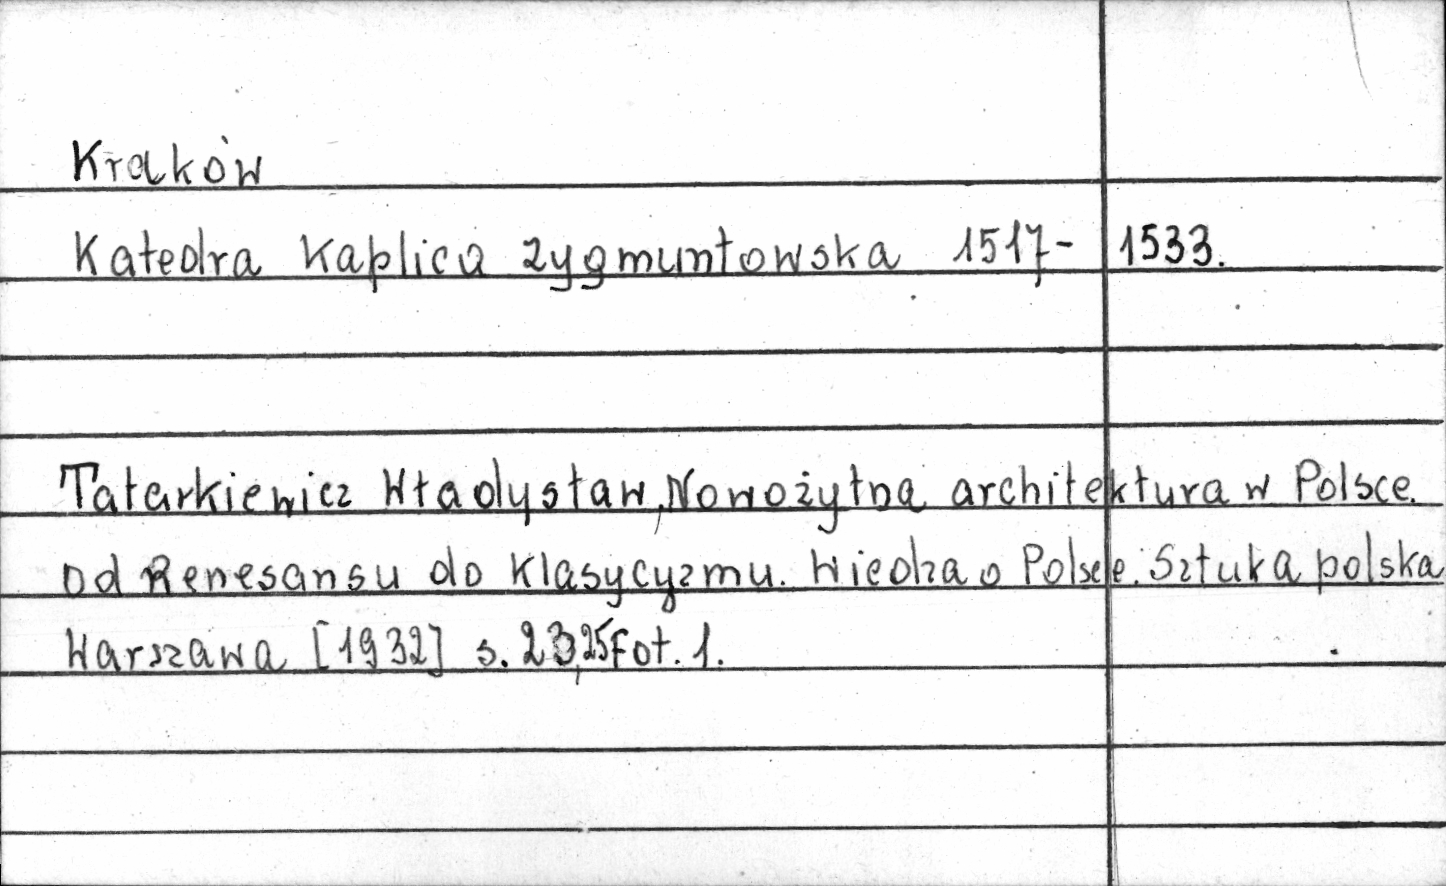 Kraków
Katedra Kaplica Zygmuntowska 1517-1533.
Tatarkiewicz Władysław, Nowożytna architektura w Polsce.
od Renesansu do Klasycyzmu. Wiedza o Polsce. Sztuka polska
Warszawa [1932] s. 23,25 Fot. 1.